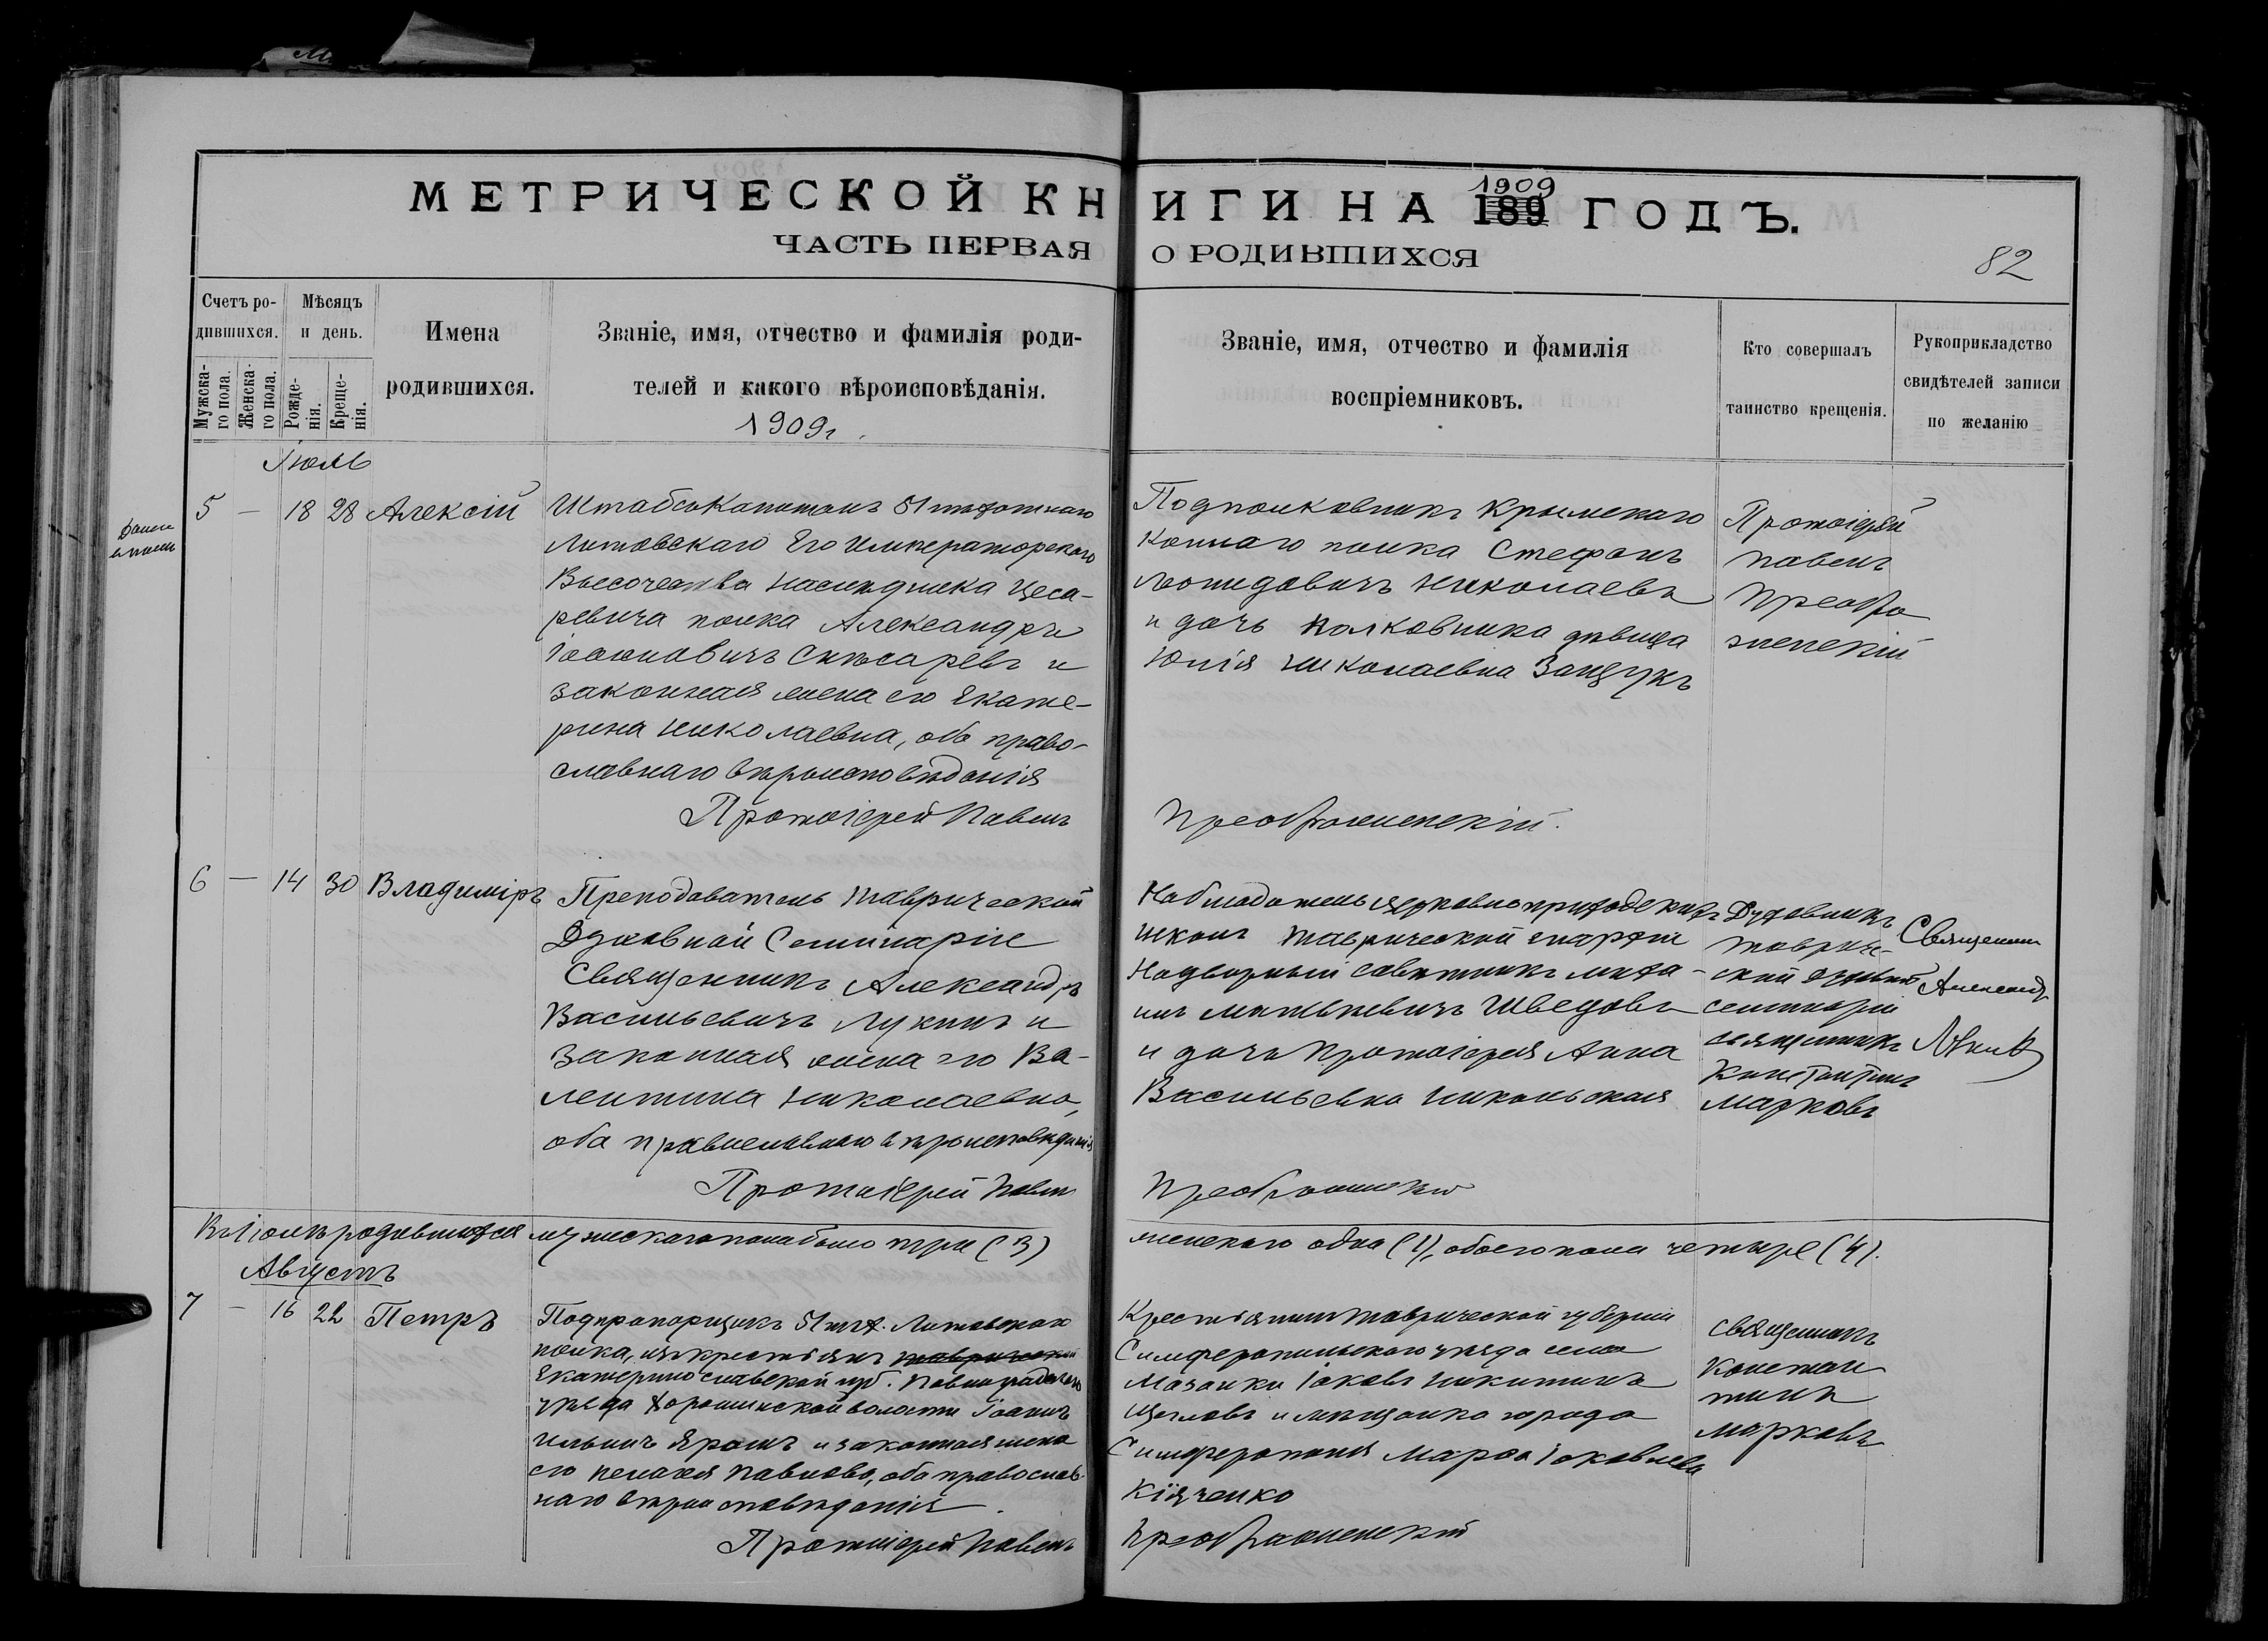 МЕТРИЧЕСКОЙ КНИГИ НА 1909 189 ГОДЪ.
ЧАСТЬ ПЕРВАЯ О РОДИВШИХСЯ
82
Счетъ ро-
дившихся.
Мужска-
го пола.
Женска-
го пола.
Мѣсяцъ
и день.
Рожде-
нія.
Креще-
нія.
Имена
родившихся.
Званіе, имя, отчество и фамилія роди-
телей и какого вѣроисповѣданія.
1909г.
Званіе, имя, отчество и фамилія
воспріемниковъ.
Кто совершалъ
таинство крещенія.
Рукоприкладство
свидѣтелей записи
по желанію
Іюль
5 — 18 28 Алексій
Штабсъ Капитанъ 51 пѣхотнаго
Литовскаго Его Императорскаго
Высочества Наслѣдника Цеса-
ревича полка Александръ
Іоанновичъ Слѣсаревъ и
законная жена его Екате-
рина Николаевна, оба право-
славнаго вѣроисповѣданія
Протоіерей Павелъ
Подполковникъ Крымскаго
Коннаго полка Стефанъ
Леонидовичъ Николаевъ
и дочь полковника дѣвица
Юлія Николаевна Защукъ
Преображенскій.
Протоіерей
Павелъ
Преобра
женскій
6 — 14 30 Владиміръ
Преподаватель Таврической
Духовной Семинаріи
Священникъ Александръ
Васильевичъ Лукинъ и
законная жена его Ва-
лентина Николаевна,
оба православнаго вѣроисповѣданія
Протоіерей Павелъ
Наблюдатель церковноприходскихъ
школъ Таврической епархіи
Надворный совѣтникъ Миха-
илъ Матвѣевичъ Шведовъ
и дочь Протоіерея Анна
Васильевна Никольская
Преображенскій
Духовникъ
Тавриче-
ской духовной
семинаріи
священникъ
Константинъ
Марковъ
Священникъ
Александръ
Лукинъ
Въ Іюлѣ родившихся мужескаго пола было три (3) женскаго одна (1), обоего пола четыре (4).
Августъ
7 — 16 22 Петръ
Подпрапорщикъ 51 пѣх. Литовскаго
полка, изъ крестьянъ Таврической
Екатеринославской губ. Павлоградскаго
уѣзда Хорошинской волости Іоаннъ
Ильичъ Ярошъ и законная жена
его Пелагея Павлова, оба православ-
наго вѣроисповѣданія.
Протоіерей Павелъ
Крестьянинъ Таврической губерніи
Симферопольскаго уѣзда села
Мазанки Іаковъ Никитинъ
Щегловъ и мѣщанка города
Симферополя Марѳа Іаковлева
Кіяченко
Преображенскій
Священникъ
Констан
тинъ
Марковъ